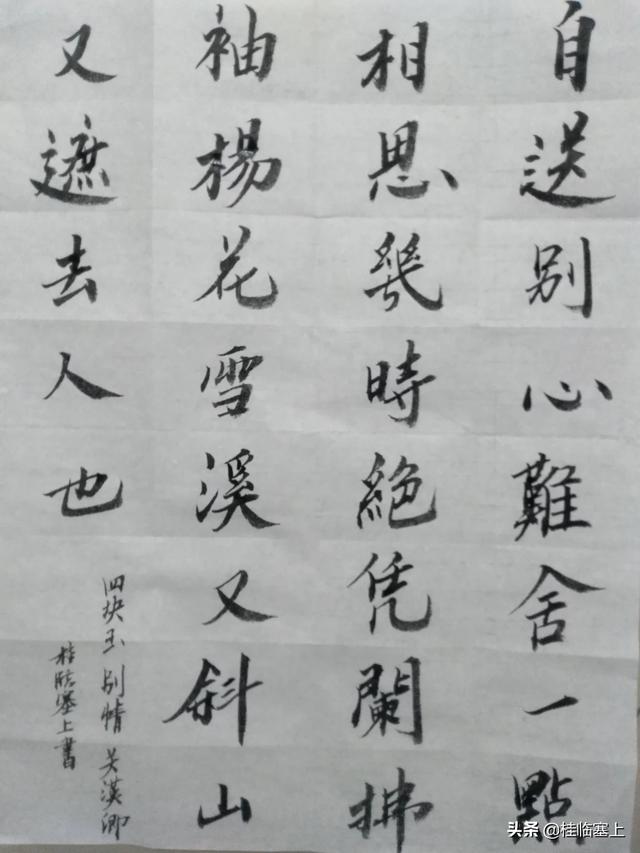 自送別心難舍一點
相思幾時絕凭闌拂
袖楊花雪溪又斜山
又遮去人也
四块玉 别情 关漢卿
桂临塞上書
头条 @桂临塞上